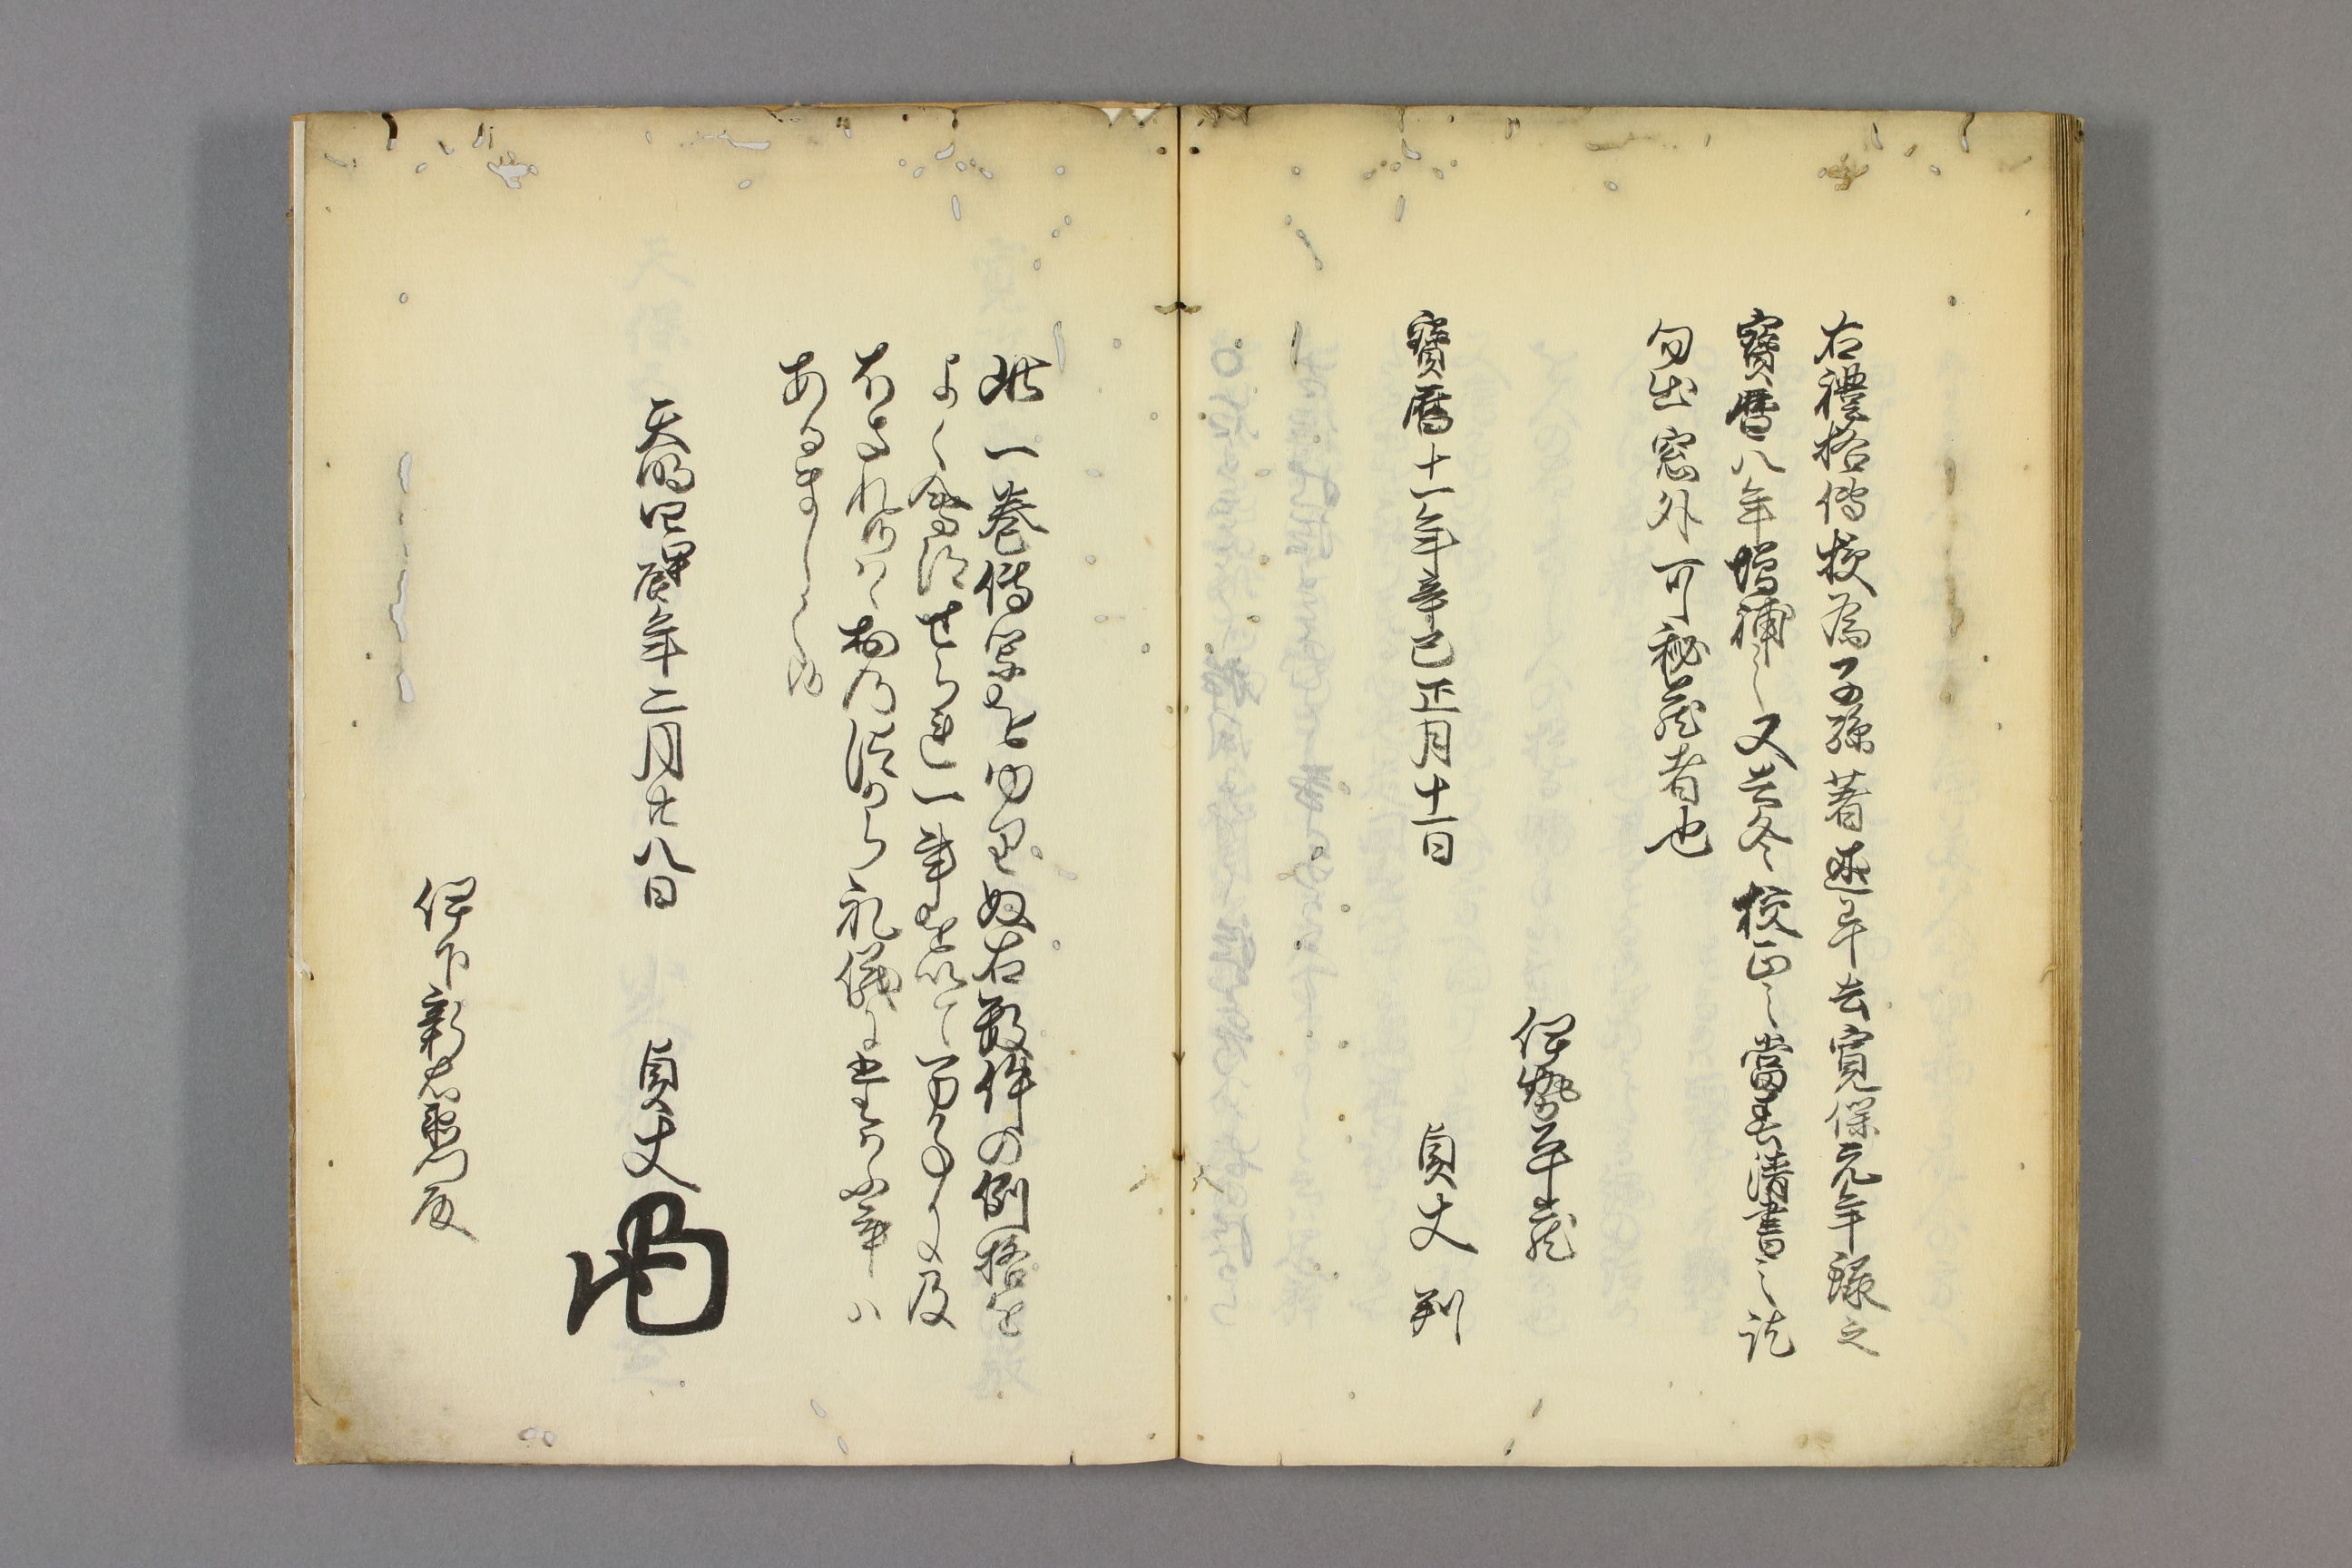 右禮格傳授為子孫著述畢去寛保元年録之
寶暦八年増補之又去冬校正之當春清書之訖
勿出窓外可秘蔵者也
伊勢平蔵
寶暦十一年辛巳正月十一日
貞丈 判
此一巻傳授を申畢ぬ右數件の例格を
よく會得せられ一事を以て万事に及
ほされ候ハヽ物の限あらん礼儀に
あるましく候
天明四甲辰年二月廿八日
貞丈
伊下新右衛門殿